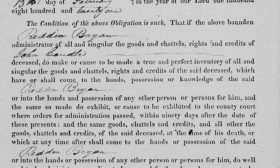 13th day of February in the year of our Lord one thousand
eight hundred and twenty one
The Condition of the above Obligation is such, That if the above bounden
Redden Bryan
administrator of all and singular the goods and chattels, rights and credits of
John
deceased, do make or cause to be made a true and perfect inventory of all and
singular the goods and chattels, rights and credits of the said deceased, which
have or shall come to the hands, possession or knowledge of the said
Redden Bryan
or into the hands and possession of any other person or persons for him, and
the same so made do exhibit, or cause to be exhibited to the county court
where orders for administration passed, within ninety days after the date of
these presents; and the same goods, chattels and credits, and all other the
goods, chattels and credits, of the said deceased, at the time of his death, or
which at any time after shall come to the hands or possession of the said
Redden Bryan
or into the hands or possession of any other person or persons for him, do well